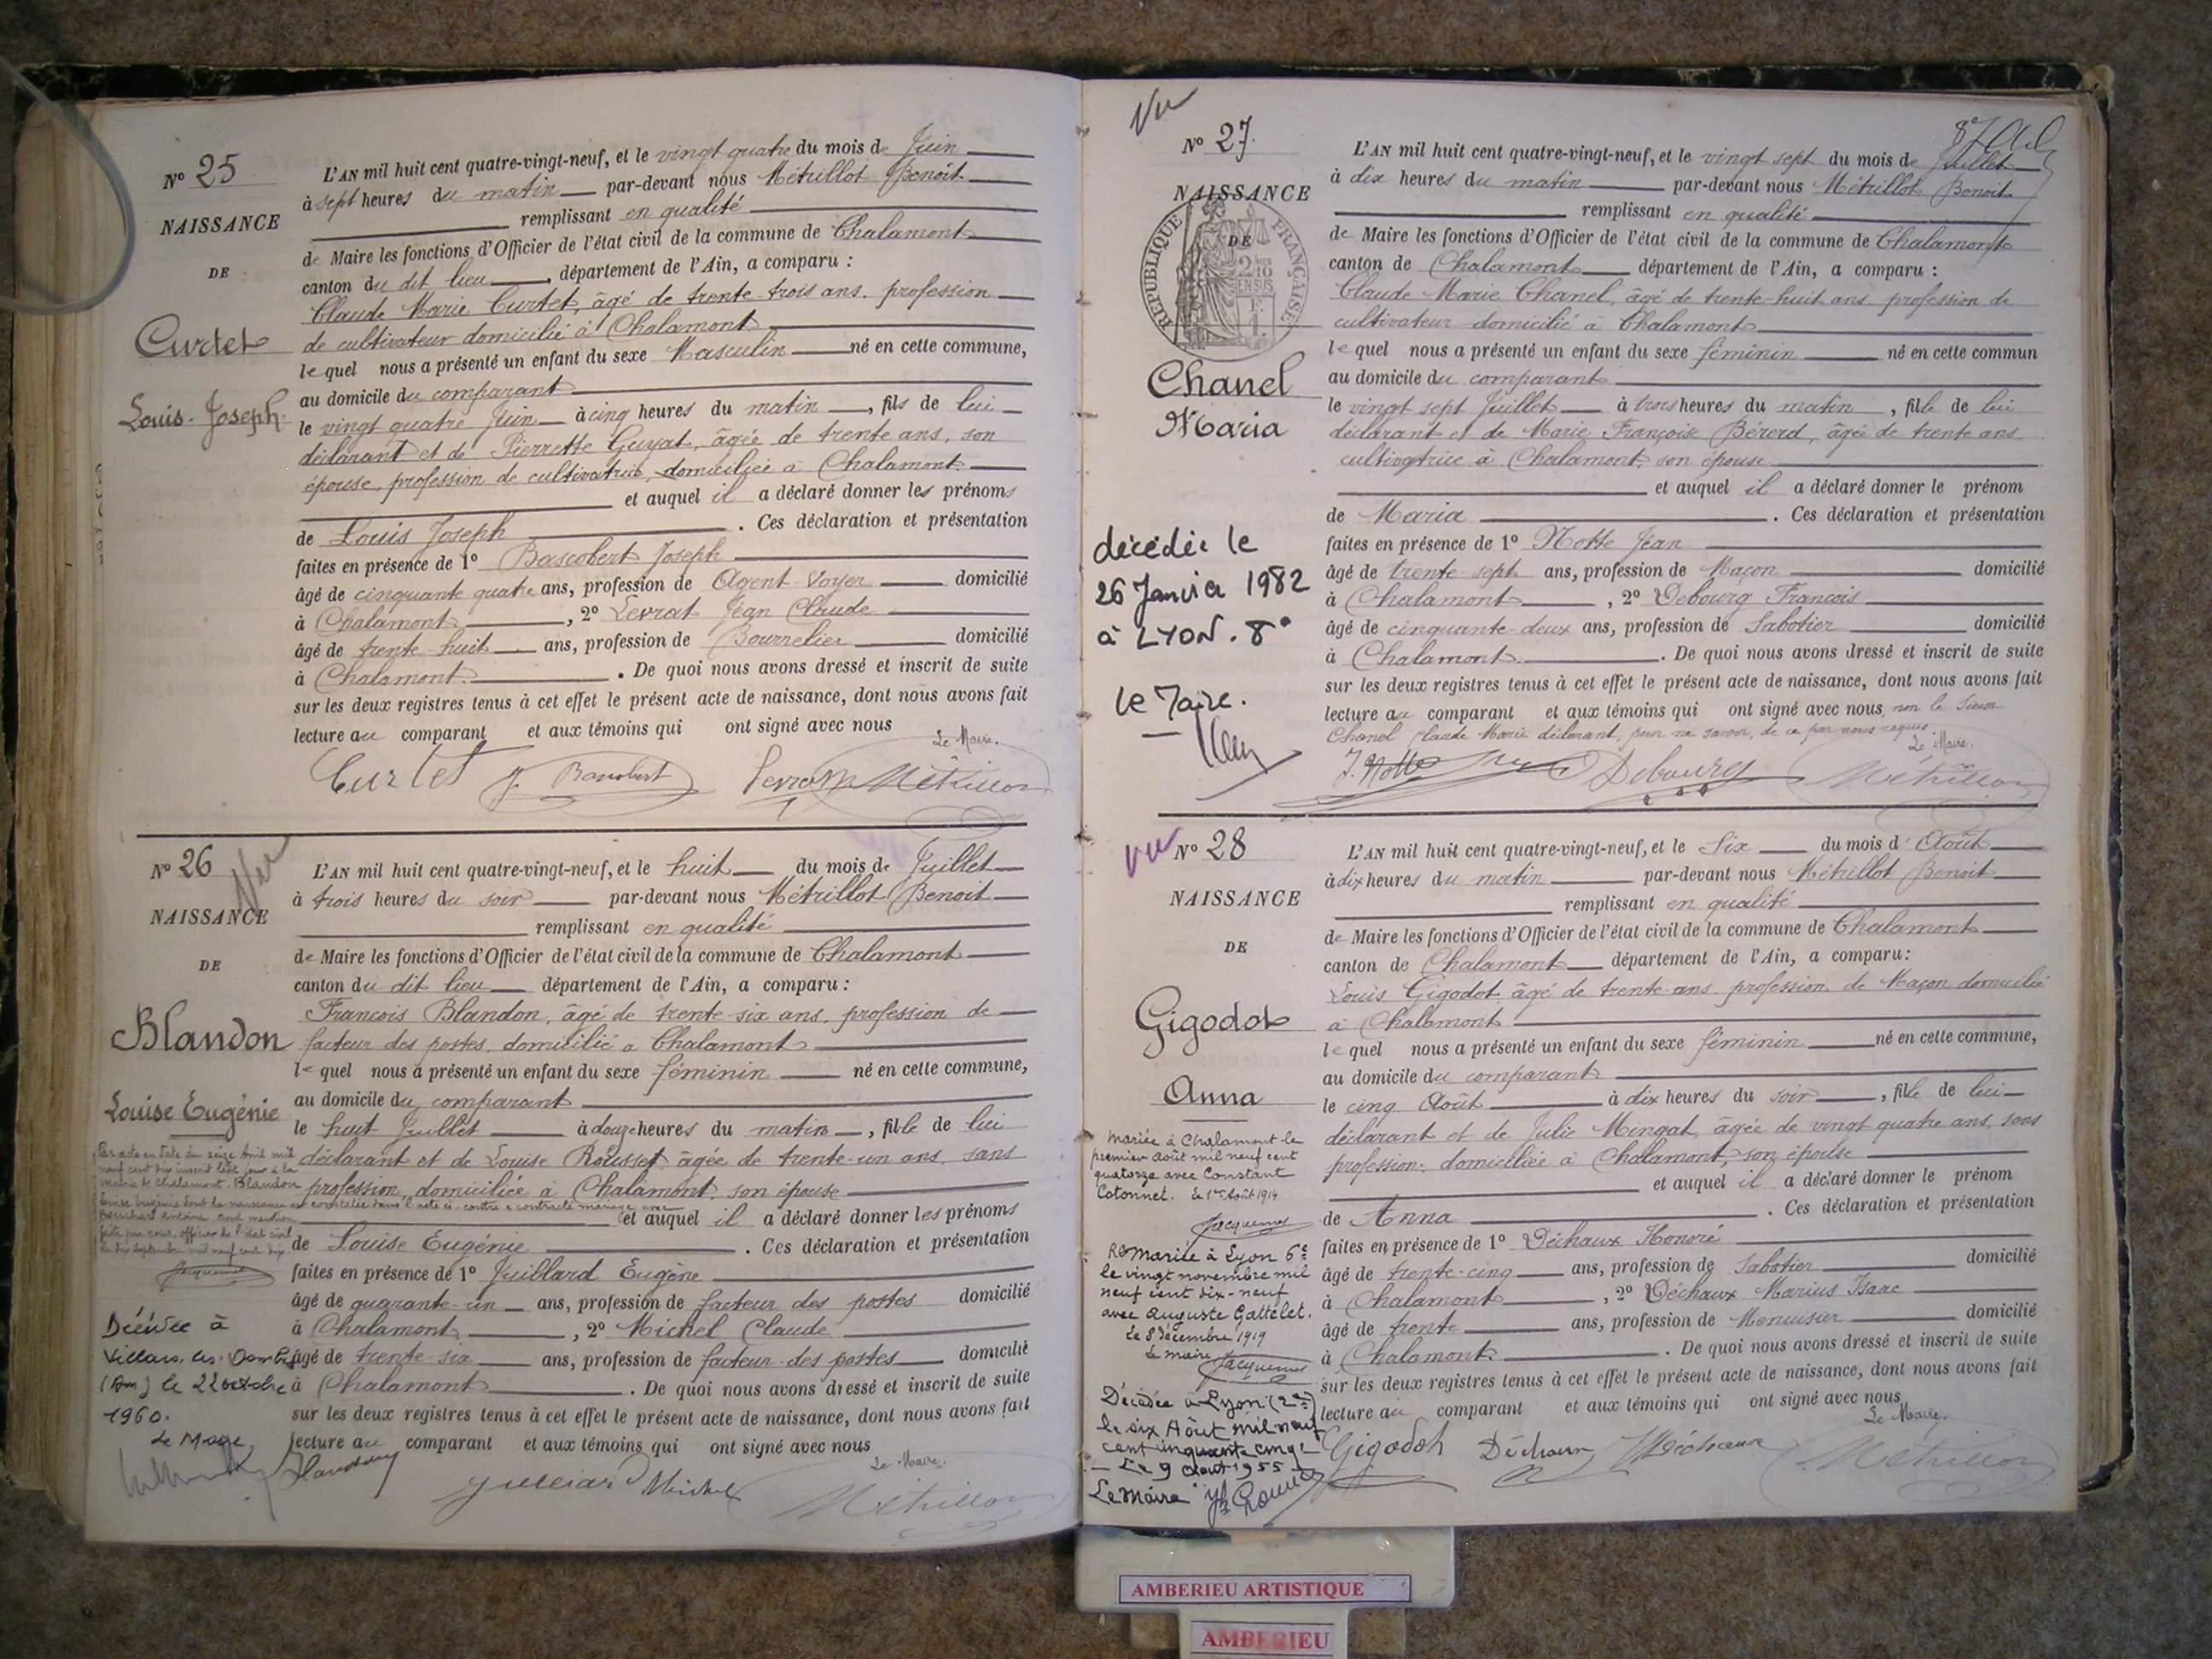 N° 25
NAISSANCE
DE
Curtet
Louis-Joseph
L'AN mil huit cent quatre-vingt-neuf, et le vingt quatre du mois de Juin
à sept heures du matin par-devant nous Métrillot Benoit
remplissant en qualité
de Maire les fonctions d'Officier de l'état civil de la commune de Chalamont
canton du dit lieu, département de l'Ain, a comparu :
Claude Marie Curtet, âgé de trente-trois ans, profession
de cultivateur domicilié à Chalamont
lequel nous a présenté un enfant du sexe Masculin né en cette commune,
au domicile du comparant
le vingt quatre Juin à cinq heures du matin, fils de lui
déclarant et de Pierrette Guyat, âgée de trente ans, son
épouse, profession de cultivatrice, domiciliée à Chalamont
et auquel il a déclaré donner les prénoms
de Louis Joseph. Ces déclaration et présentation
faites en présence de 1° Bascobert Joseph
âgé de cinquante quatre ans, profession de Agent-Voyer domicilié
à Chalamont, 2° Levrat Jean Claude
âgé de trente-huit ans, profession de Bourrelier domicilié
à Chalamont. De quoi nous avons dressé et inscrit de suite
sur les deux registres tenus à cet effet le présent acte de naissance, dont nous avons fait
lecture au comparant et aux témoins qui ont signé avec nous
Le Maire.
Curtet J. Levrat Métrillot
N° 26
Vu
NAISSANCE
DE
Blandon
Louise Eugénie
Par acte en date du seize Avril mil
neuf cent dix inscrit le jour à la
mairie de Chalamont. Blandon
Louise Eugénie dont la naissance est constatée dans l'acte ci-contre a contracté mariage avec
Antoine dont mention
faite par nous, officier de l'état civil
le dix Septembre mil neuf cent dix
Jacquemet
Décédée à
Villars les Dombes
(Ain) le 22 octobre
1960.
Le Maire
L'AN mil huit cent quatre-vingt-neuf, et le huit du mois de Juillet
à trois heures du soir par-devant nous Métrillot Benoit
remplissant en qualité
de Maire les fonctions d'Officier de l'état civil de la commune de Chalamont
canton du dit lieu département de l'Ain, a comparu :
François Blandon, âgé de trente-six ans, profession de
facteur des postes, domicilié à Chalamont
lequel nous a présenté un enfant du sexe féminin né en cette commune,
au domicile du comparant
le huit Juillet à douze heures du matin, fille de lui
déclarant et de Louise Rousset, âgée de trente-un ans, sans
profession, domiciliée à Chalamont, son épouse
et auquel il a déclaré donner les prénoms
de Louise Eugénie. Ces déclaration et présentation
faites en présence de 1° Juillard Eugène
âgé de quarante-un ans, profession de facteur des postes domicilié
à Chalamont, 2° Michel Claude
âgé de trente-six ans, profession de facteur des postes domicilié
à Chalamont. De quoi nous avons dressé et inscrit de suite
sur les deux registres tenus à cet effet le présent acte de naissance, dont nous avons fait
lecture au comparant et aux témoins qui ont signé avec nous
Le Maire.
Blandon Juillard Michel Métrillot
Vu
N° 27
NAISSANCE
DE
RÉPUBLIQUE FRANÇAISE
Chanel
Maria
décédée le
26 Janvier 1982
à LYON. 8°
le Maire.
L'AN mil huit cent quatre-vingt-neuf, et le vingt sept du mois de Juillet
à dix heures du matin par-devant nous Métrillot Benoit
remplissant en qualité
de Maire les fonctions d'Officier de l'état civil de la commune de Chalamont
canton de Chalamont département de l'Ain, a comparu :
Claude Marie Chanel, âgé de trente-huit ans profession de
cultivateur domicilié à Chalamont
lequel nous a présenté un enfant du sexe féminin né en cette commun
au domicile du comparant
le vingt sept Juillet à trois heures du matin, fille de lui
déclarant et de Marie Françoise Bérerd, âgée de trente ans,
cultivatrice à Chalamont, son épouse
et auquel il a déclaré donner le prénom
de Maria. Ces déclaration et présentation
faites en présence de 1° Notte Jean
âgé de trente-sept ans, profession de Maçon domicilié
à Chalamont, 2° Debourg François
âgé de cinquante-deux ans, profession de Sabotier domicilié
à Chalamont. De quoi nous avons dressé et inscrit de suite
sur les deux registres tenus à cet effet le présent acte de naissance, dont nous avons fait
lecture au comparant et aux témoins qui ont signé avec nous, non le Sieur
Chanel Claude Marie déclarant, pour ne savoir, de ce par nous requis
Le Maire.
J. Notte Debourg Métrillot
Vu
N° 28
NAISSANCE
DE
Gigodot
Anna
Mariée à Chalamont le
premier Août mil neuf cent
quatorze avec Constant
Cotonnet. Le 1er Août 1914
Jacquemet
Remariée à Lyon 6e
le vingt novembre mil
neuf cent dix-neuf
avec Auguste Gattelet.
Le 8 décembre 1919
Le maire Jacquemet
Décédée à Lyon (2e)
le six Août mil neuf
cent cinquante cinq
Le 9 Août 1955
Le Maire
L'AN mil huit cent quatre-vingt-neuf, et le Six du mois d'Août
à dix heures du matin par-devant nous Métrillot Benoit
remplissant en qualité
de Maire les fonctions d'Officier de l'état civil de la commune de Chalamont
canton de Chalamont département de l'Ain, a comparu :
Louis Gigodot, âgé de trente ans, profession de Maçon domicilié
à Chalamont
lequel nous a présenté un enfant du sexe féminin né en cette commune,
au domicile du comparant
le cinq Août à dix heures du soir, fille de lui
déclarant et de Julie Mingat, âgée de vingt quatre ans, sans
profession, domiciliée à Chalamont, son épouse
et auquel il a déclaré donner le prénom
de Anna. Ces déclaration et présentation
faites en présence de 1° Déchaux Honoré
âgé de trente-cinq ans, profession de Sabotier domicilié
à Chalamont, 2° Déchaux Marius Isaac
âgé de trente ans, profession de Menuisier domicilié
à Chalamont. De quoi nous avons dressé et inscrit de suite
sur les deux registres tenus à cet effet le présent acte de naissance, dont nous avons fait
lecture au comparant et aux témoins qui ont signé avec nous
Le Maire.
Gigodot Déchaux Déchaux Métrillot
AMBERIEU ARTISTIQUE
AMBERIEU